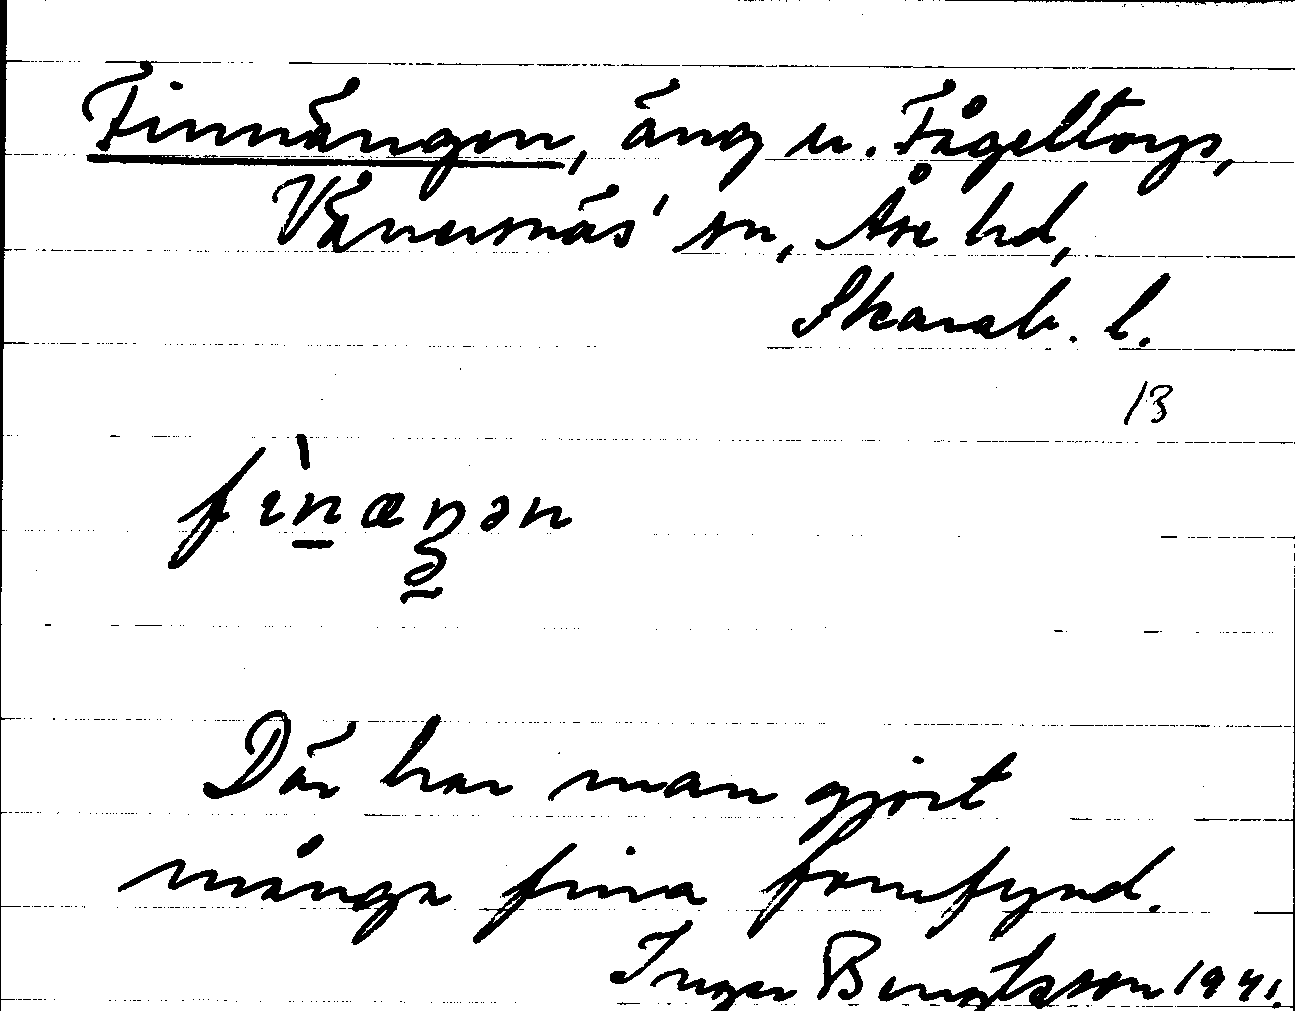 Finnängen, äng u. Fågeltorp,
Vänersnäs' sn, Åse hd,
Skarab. l.
13
fìnæŋən
Där har man gjort
många fina fornfynd.
Inger Bengtsson 1941.